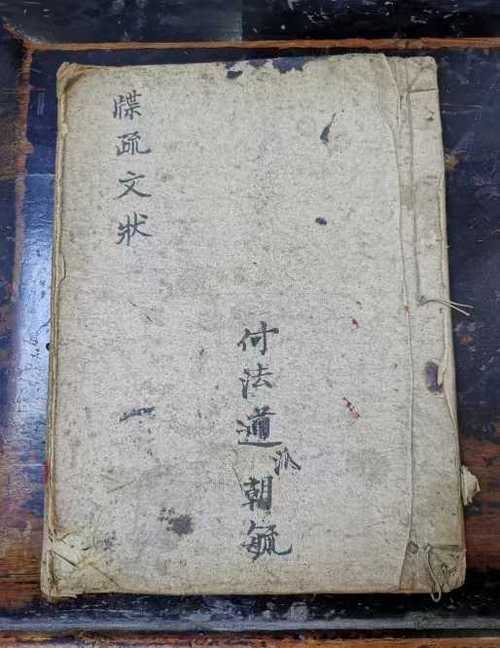 牒疏文狀
付法道朝毓